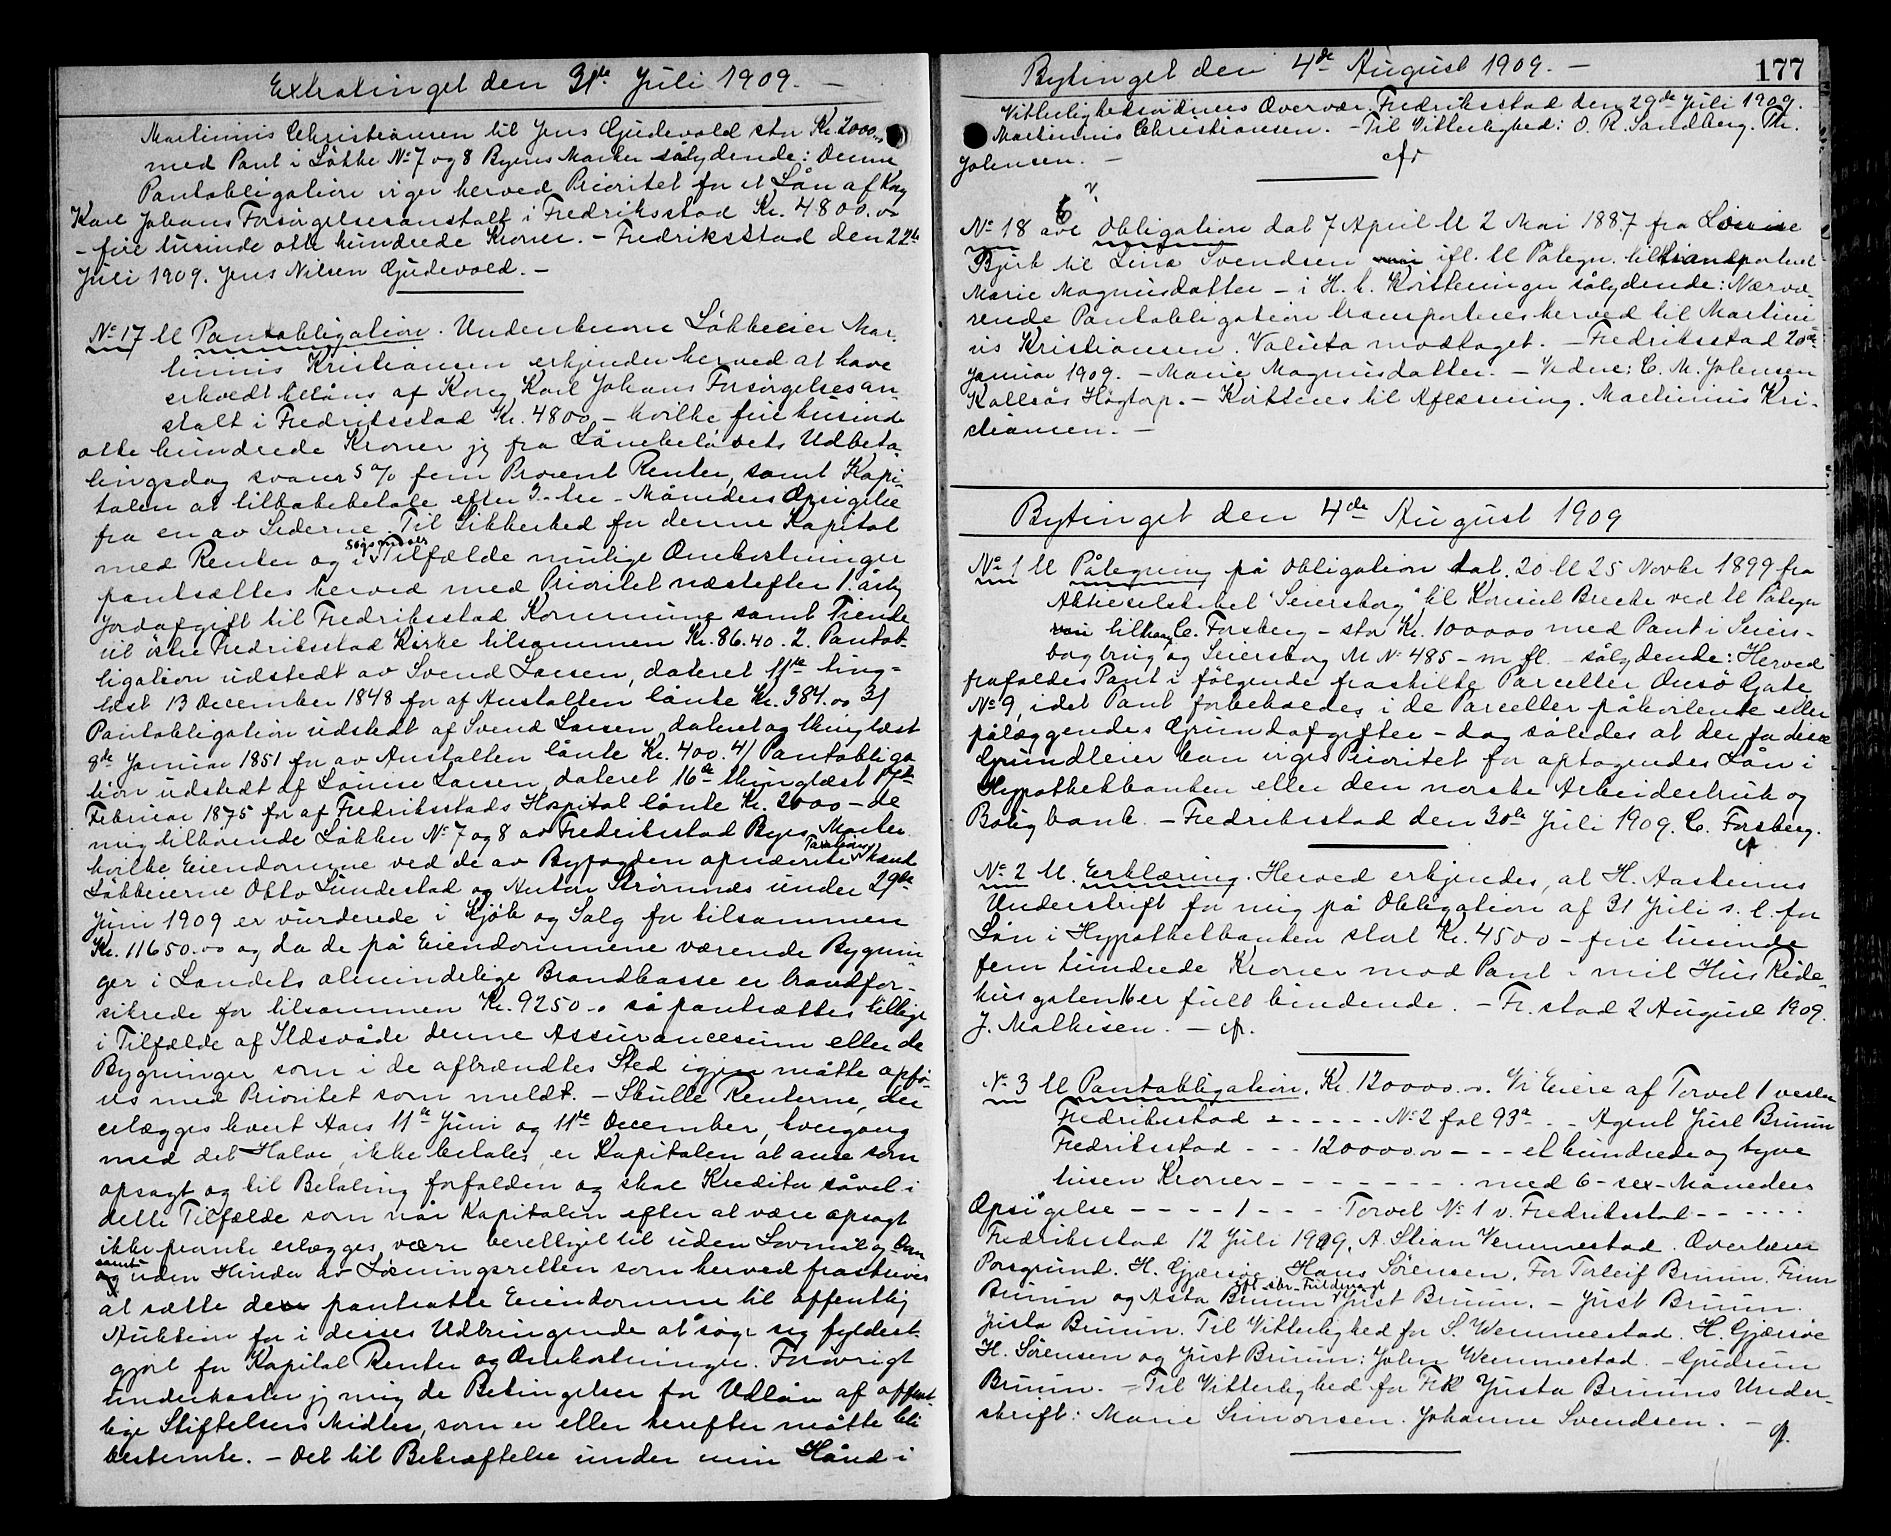 Extratinget den 31te Juli 1909. –
Martinius Christiansen til Jens Gudevold stor Kr. 2000.00
med Pant i Løkke No 7 og 8 Byens Marker sålydende: Denne
Pantobligation viger herved Prioritet for et Lån af Kong
Karl Johans Forsørgelsesanstalt i Fredriksstad Kr. 4800.00
– fire tusinde otte hundrede Kroner. – Fredriksstad den 22de
Juli 1909. Jens Nilsen Gudevold. –
No 17 ll Pantobligation. Undertegnede Løkkeeier Mar-
tinius Kristiansen erkjender herved at have
erholdt tillåns af Kong Karl Johans Forsørgelsesan-
stalt i Fredriksstad Kr. 4800 – hvilke fire tusinde
otte hundrede Kroner jeg fra Lånebeløbets Udbeta-
lingsdag svarer 5 % fem Procent Renter, samt Kapi-
talen at tilbakebetale efter 3 – tre – Måneders Opsigelse
fra en av Siderne. Til Sikkerhed for denne Kapital
med Renter og i Søgsmåls Tilfælde mulige Omkostninger
pantsættes herved med Prioritet næstefter 1. årlig
Jordafgift til Fredriksstad Kommune samt Tiende
til østre Fredriksstad Kirke tilsammen Kr. 86.40. 2. Pantob-
ligation udstedt av Svend Larsen, dateret 11te ting-
læst 13 December 1848 for af Anstalten lånte Kr. 384.00 3/
Pantobligation udstedt af Svend Larsen, dateret og thinglæst
8de Januar 1851 for av Anstalten lånte Kr. 400. 4/ Pantobliga
tion udstedt af Louise Larsen, dateret 16de thinglæst
Februar 1875 for af Fredriksstads Hospital lånte Kr. 2000 – de
mig tilhørende Løkker No 7 og 8 av Fredriksstad Byes Marker.
hvilke Eiendomme ved de av Byfogden opnævnte Takstmænd
Løkkeierne Otto Lundestad og Anton Strømnes under 29de
Juni 1909 er vurderede i Kjøb og Salg for tilsammen
Kr. 11650.00 og da de på Eiendommene værende Bygnin
ger i Landets almindelige Brandkasse er brandfor-
sikrede for tilsammen Kr. 9250.00 så pantsættes tillige
i Tilfælde af Ildsvåde denne Assurancesum eller de
Bygninger som i de afbrændtes Sted igjen måtte opfø-
res med Prioritet som meldt. – Skulle Renterne, der
erlægges hvert Aars 11te Juni og 11te December, hvergang
med det Halve, ikke betales, er Kapitalen at anse som
opsagt og til Betaling forfalden og skal Kreditor såvel i
dette Tilfælde som når Kapitalen efter at være opsagt
ikke promte erlægges, være berettiget til uden Lovmål og Dom
samt uden Hinder av Løsningsretten som herved fraskrives
at sætte de pantsatte Eiendomme til offentlig
Auktion for i disses Udbringende at søge sig fyldest-
gjort for Kapital Renter og Omkostninger. Forøvrigt
underkaster jeg mig de Betingelser for Udlån af offent-
lige Stiftelsers Midler, som er eller herefter måtte bli
bestemte. – Det til Bekræftelse under min Hånd i
Bytinget den 4de August 1909. –
177
Vitterlighedsvidners Overvær. Fredriksstad den 29de Juli 1909.
Martinius Christiansen. – Til Vitterlighed: O. R. Sandberg. Th.
Johnsen. –
cfr
No 18 Obligation dat 7 April ll 2 Mai 1887 fra Louise
Bjerk til Lina Svendsen ifl. ll Påtegn. till transporteret
Marie Magnusdatter – i H. t. Kvitteringer sålydende: Nærvæ-
rende Pantobligation transporteres herved til Martini-
us Kristiansen. Valuta modtaget. – Fredriksstad 20de
Januar 1909. – Marie Magnusdatter. – Vidne: C. M. Johnsen
Kallsås Høgtorp. – Kvitteres til Aflæsning. Martinius Kri-
stiansen. –
Bytinget den 4de August 1909
No 1 ll Påtegning på Obligation dat. 20 ll 25 Novbr 1899 fra
Aktieselskabet "Seiersborg" til Konsul Breche ved ll Påtegn
till C. Forsberg – stor Kr. 100000 med Pant i Seiers-
borg brug og Seiersborg M No 485 – m. fl. – sålydende: Herved
frafaldes Pant i følgende fraskilte Parceller Onsø Gate
No 9, idet Pant forbeholdes i de Parceller påhvilende eller
pålæggendes Grundafgifter – dog således at der fa disse
Grundleier kan viges Prioritet for optagendes Lån i
Hypothekbanken eller den norske Arbeiderbruk og
Boligbank. – Fredriksstad den 30te Juli 1909. C. Forsberg.
cfr
No 2 ll. Erklæring. Herved erkjendes, at H. Aastruns
Underskrift for mig på Obligation af 31 Juli s. l. for
Lån i Hypothekbanken stort Kr. 4500 – fire tusinde
fem hundrede Kroner mod Pant i mit Hus Ride-
husgaten 16 er fuldt bindende. – Fr.stad 2 August 1909.
J. Mathisen. – cfr.
No 3 ll Pantobligation. Kr. 120000.00. Vi Eiere af Torvet 1 vestre
Fredriksstad - - - - - - No 2 fol 93a - - Agent Just Bruun
Fredriksstad - - - 120000.00 - - - et hundrede og tyve
tusen Kroner - - - - - - - - med 6 – sex – Måneders
Opsigelse - - - - 1 - - - Torvet No 1 v. Fredriksstad - - - - - -
Fredriksstad 12 Juli 1909. A. Stian Wemmestad. Overlærer
Porsgrund. H. Gjærsøe Hans Sørensen. For Torleif Bruun. Finn
Bruun og Asta Bruun efl. skr. Fuldmagt Just Bruun. – Just Bruun.
Justa Bruun. Til Vitterlighed for S. Wemmestad. H. Gjærsøe
H. Sørensen og Just Bruun: John Wemmestad. – Gudrun
Bruun. – Til Vitterlighed for Frk Justa Bruuns Under-
skrift: Marie Simonsen. Johanne Svendsen. –
cfr.